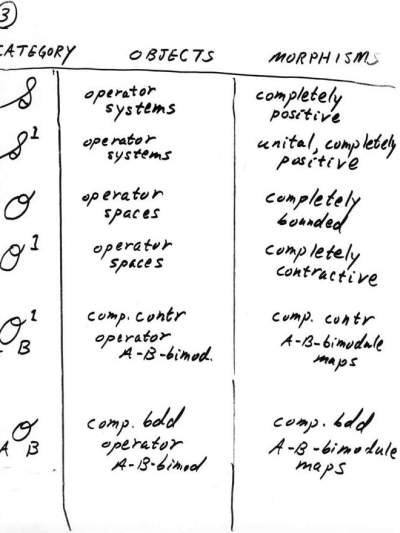 3
CATEGORY OBJECTS MORPHISMS
S operator systems completely positive
S¹ operator systems unital, completely positive
O operator spaces completely bounded
O¹ operator spaces completely contractive
A O¹ B comp. contr operator A-B-bimod. comp. contr A-B-bimodule maps
A O B comp. bdd operator A-B-bimod comp. bdd A-B-bimodule maps